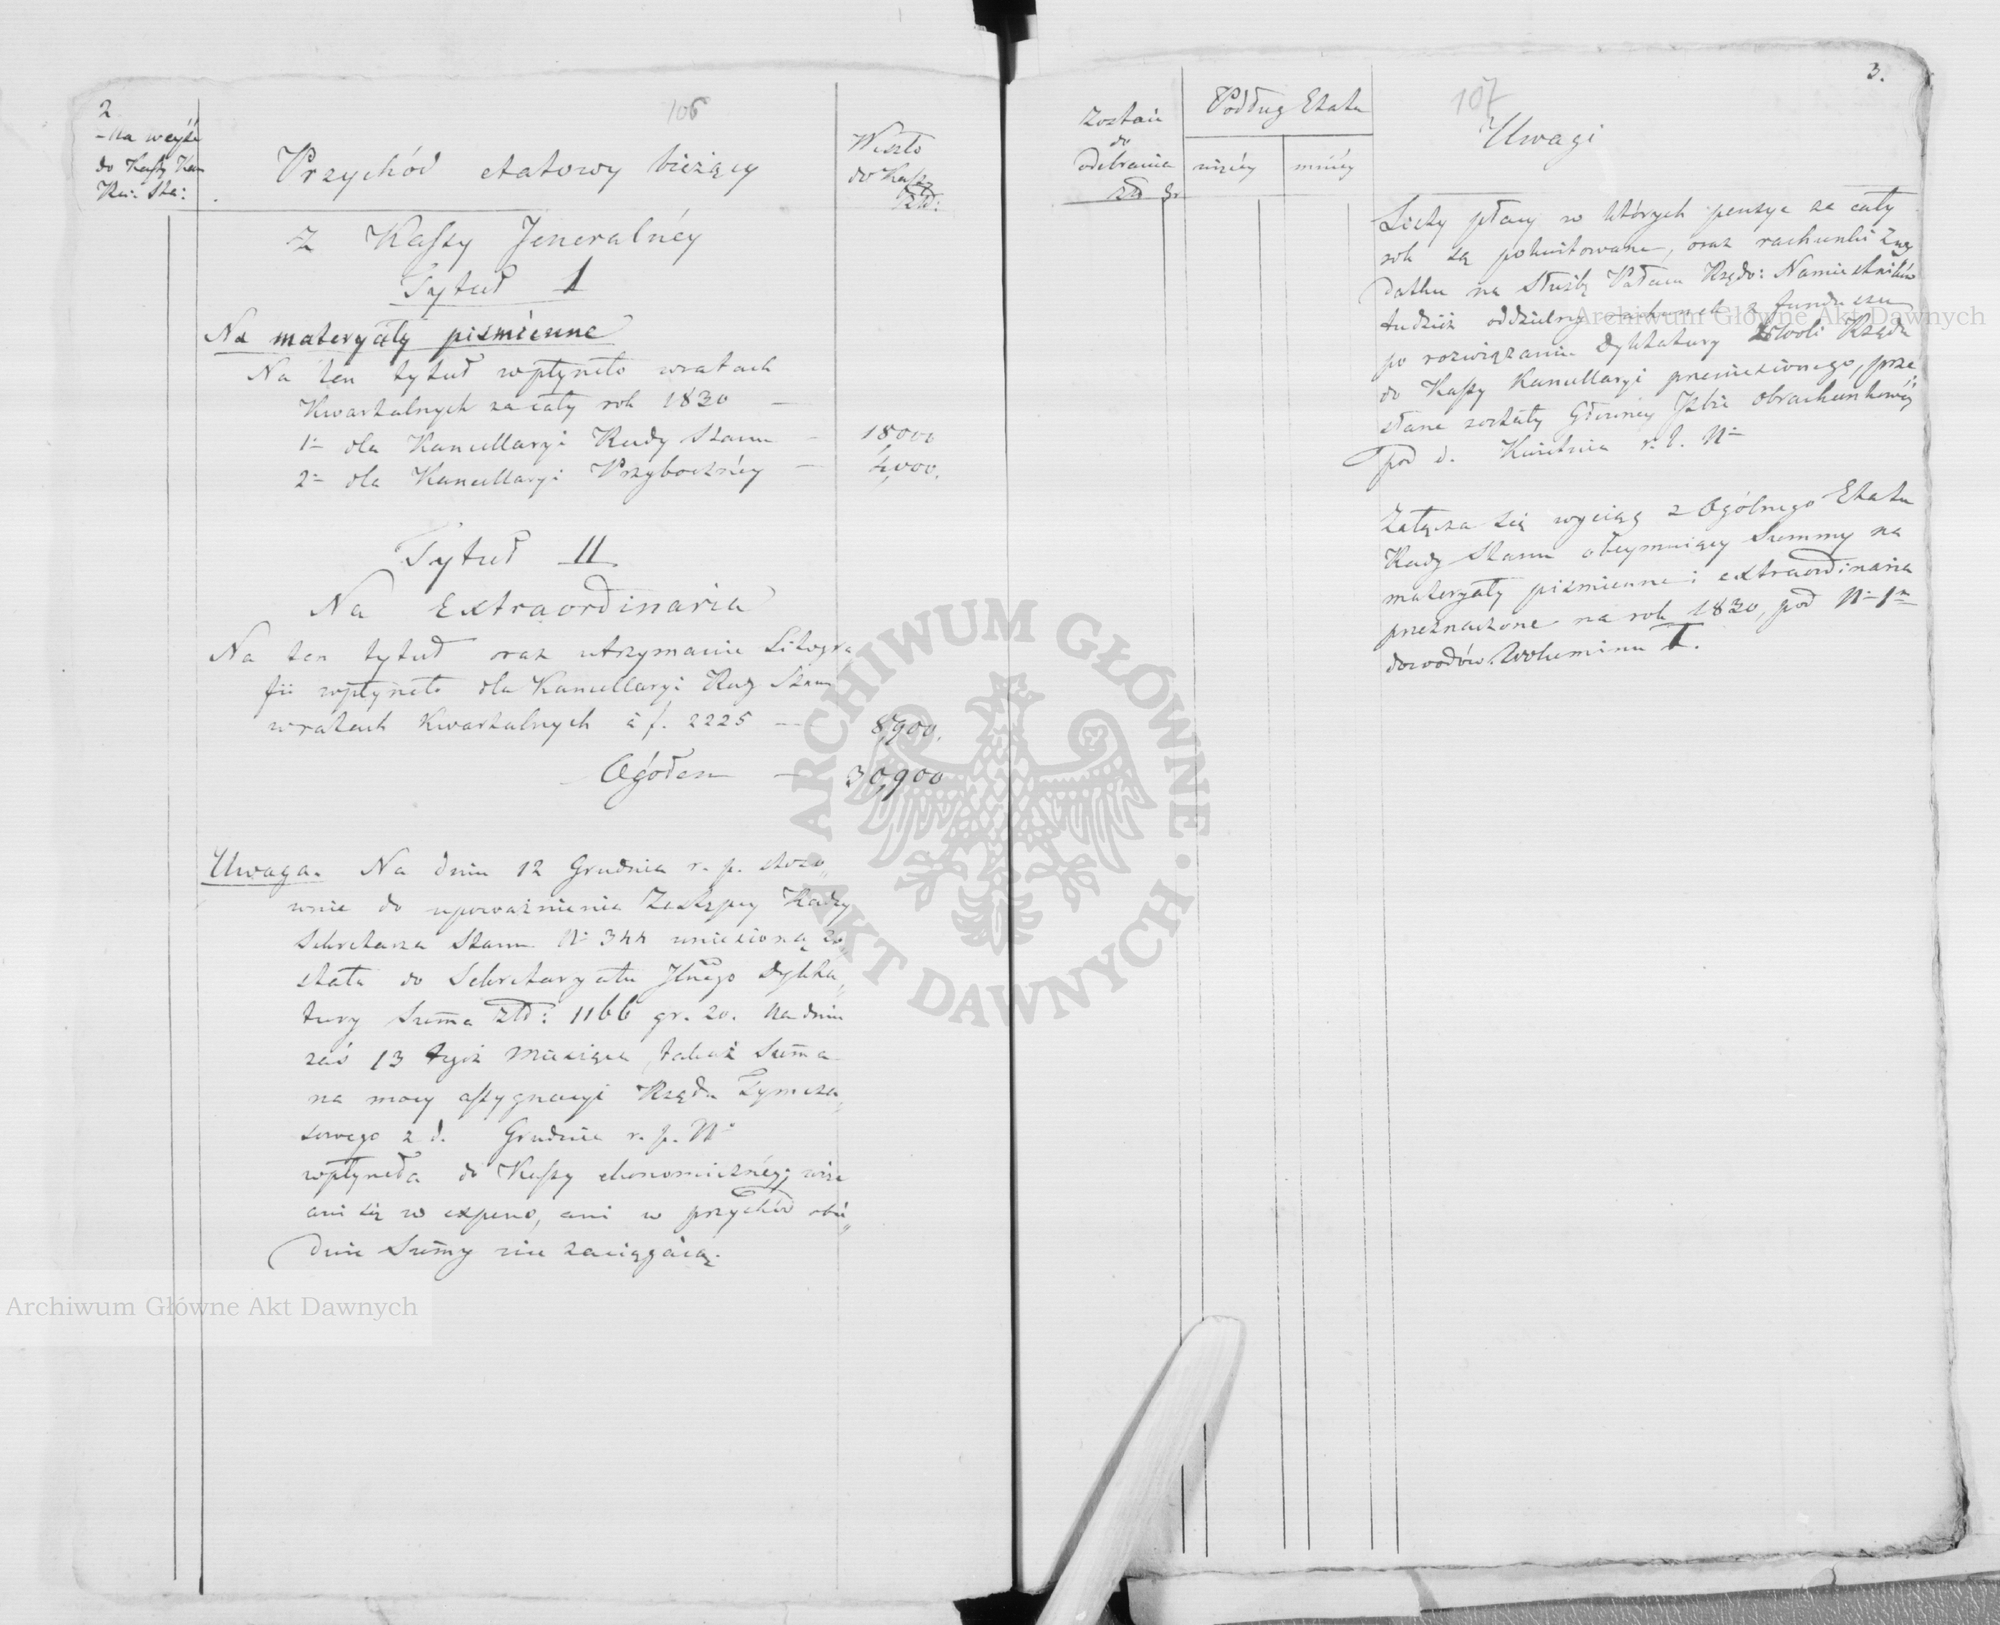 2
106
-na weyść
do Kassy Kan
Ra: Sta:
Przychód etatowy bieżący
Weszło
do Kassy
Złd:
Z Kassy Jeneralnéy
Tytuł I
Na materyały piśmienne
Na ten tytuł wpłynęło wratach
Kwartalnych za cały rok 1830 —
1- dla Kancellaryi Rady Stanu — 18,000
2- dla Kancellaryi Przybocznéy — 4,000.
Tytuł II
Na Extraordinaria
Na ten tytuł oraz utrzymanie Litogra
fii wpłynęło dla Kancellaryi Rady Stanu
wratach Kwartalnych à f. 2225 — 8,900.
Ogółem — 30,900
Uwaga. Na dniu 12 Grudnia r. p. stoso„
wnie do upoważnienia Zastępcy Radzcy
Sekretarza Stanu N- 344 wniesioną zo„
stała do Sekretaryatu Jlnego Dykta„
tury Suma Złd: 1166 gr. 20. Na dniu
zaś 13 tegoż Miesiąca, takaż Suma
na mocy assygnacyi Rządu Tymcza„
sowego z d. Grudnia r. p. N-
wpłynęła do Kassy ekonomicznéy; więc
ani się w expens, ani w przychód obie„
dwie Sumy nie zaciągaią.
3.
107
Zostaie
do
odebrania
Zł gr
Podług Etatu
więcéy
mniéy
Uwagi
Listy płacy w których pensye za cały
rok są pokwitowane, oraz rachunki z wy
datku na służbę Pałacu Rządo: Namiestników
tudzież oddzielny rachunek z funduszu
po rozwiązaniu Dyktatury z woli Rządu
do Kassy Kancellaryi przeniesionego, prze
słane zostały Głównéy Izbie obrachunkowéy
pod d. Kwietnia r. b. N-
Załącza się wyciąg z Ogólnego Etatu
Rady Stanu obeymuiący Summy na
materyały piśmienne i extraordinaria
przeznaczone na rok 1830, pod N- 1m
dowodów Woluminu I.
Archiwum Główne Akt Dawnych
ARCHIWUM GŁÓWNE AKT DAWNYCH
Archiwum Główne Akt Dawnych